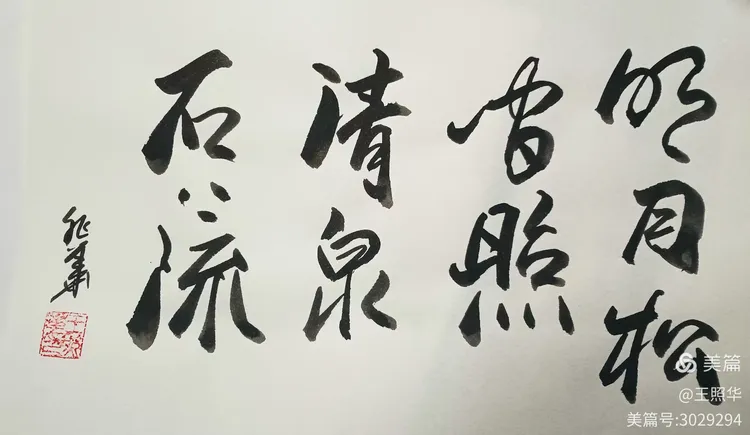 明月松
间照
清泉
石上流
美篇
@王照华
美篇号:3029294